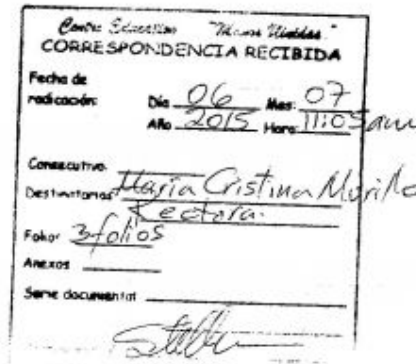 Centro Educativo "Manos Unidas"
CORRESPONDENCIA RECIBIDA
Fecha de
radicación: Dia 06 Mes: 07
Año 2015 Hora: 11:05 am
Consecutivo:
Destinatarios: Maria Cristina Murillo
Rectora.
Folios 3 folios
Anexos
Serie documental